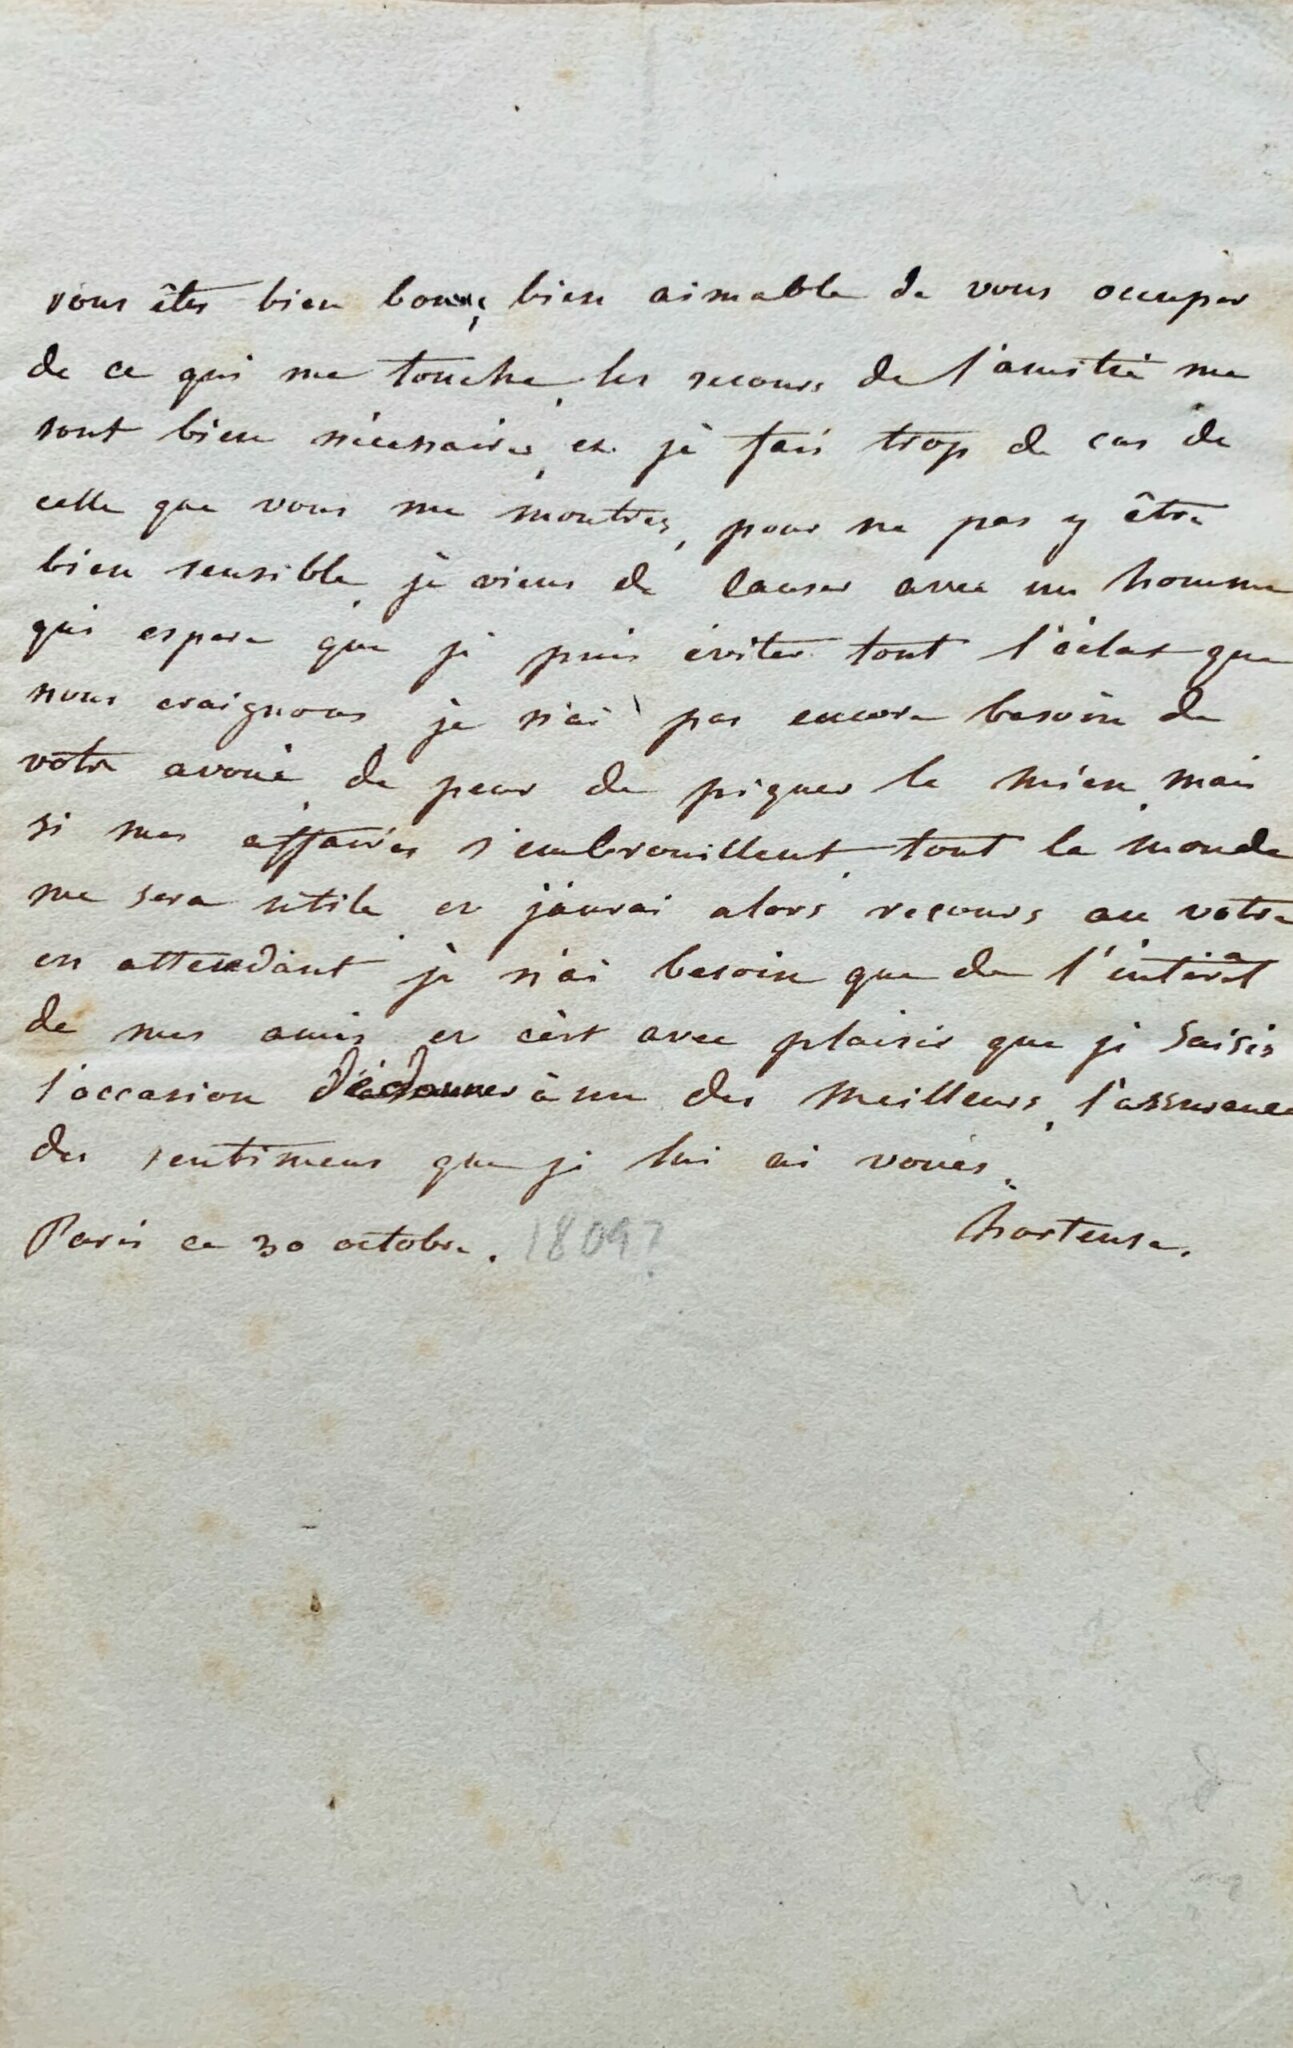 vous êtes bien bonne, bien aimable de vous occuper
de ce qui me touche, les secours de l'amitié me
sont bien nécessaires, et je fais trop de cas de
celle que vous me montrez, pour ne pas y être
bien sensible, je viens de causer avec un homme
qui espere que je puis éviter tout l'éclat que
nous craignons je n'ai pas encore besoin de
votre avoué, de peur de piquer le mien, mais
si mes affaires s'embrouillent, tout le monde
me sera utile, et j'aurai alors recours au votre
en attendant je n'ai besoin que de l'intérêt
de mes amis et c'est avec plaisir que je saisis
l'occasion de donner à un des meilleurs, l'assurance
des sentimens que je lui ai voués.
Paris ce 30 octobre. 1809?
hortense.